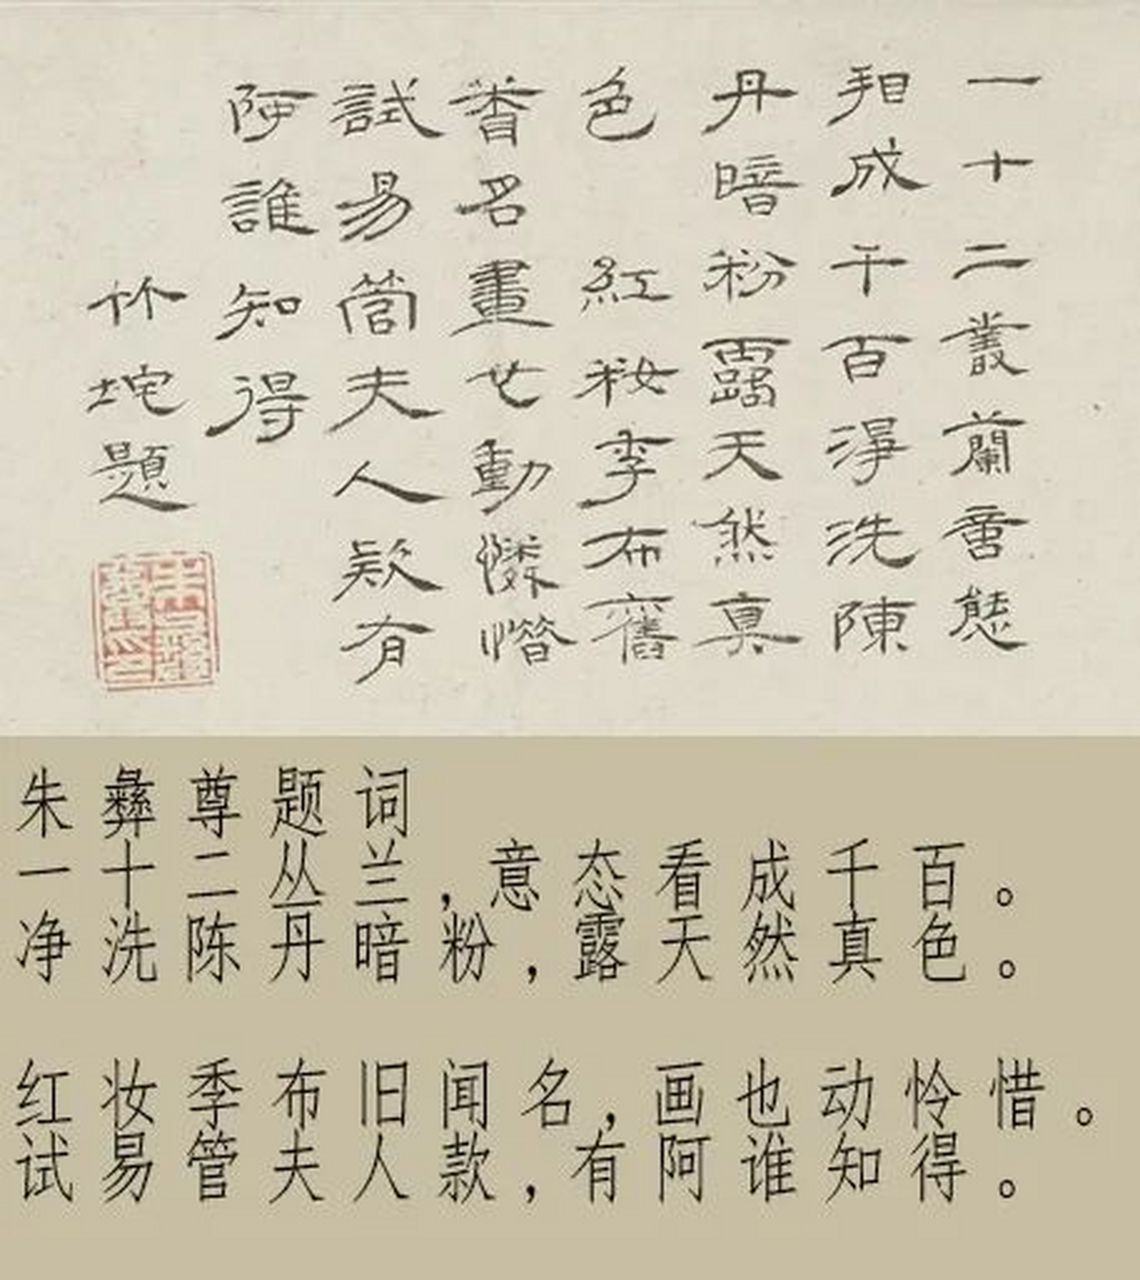 一十二叢蘭意態
相成千百淨洗陳
丹暗粉露天然真
色 紅妝季布舊
香名畫也動憐惜
試易管夫人款有
阿誰知得
竹垞題
朱彝尊题词
一十二丛兰,意态看成千百。
净洗陈丹暗粉,露天然真色。
红妆季布旧闻名,画也动怜惜。
试易管夫人款,有阿谁知得。